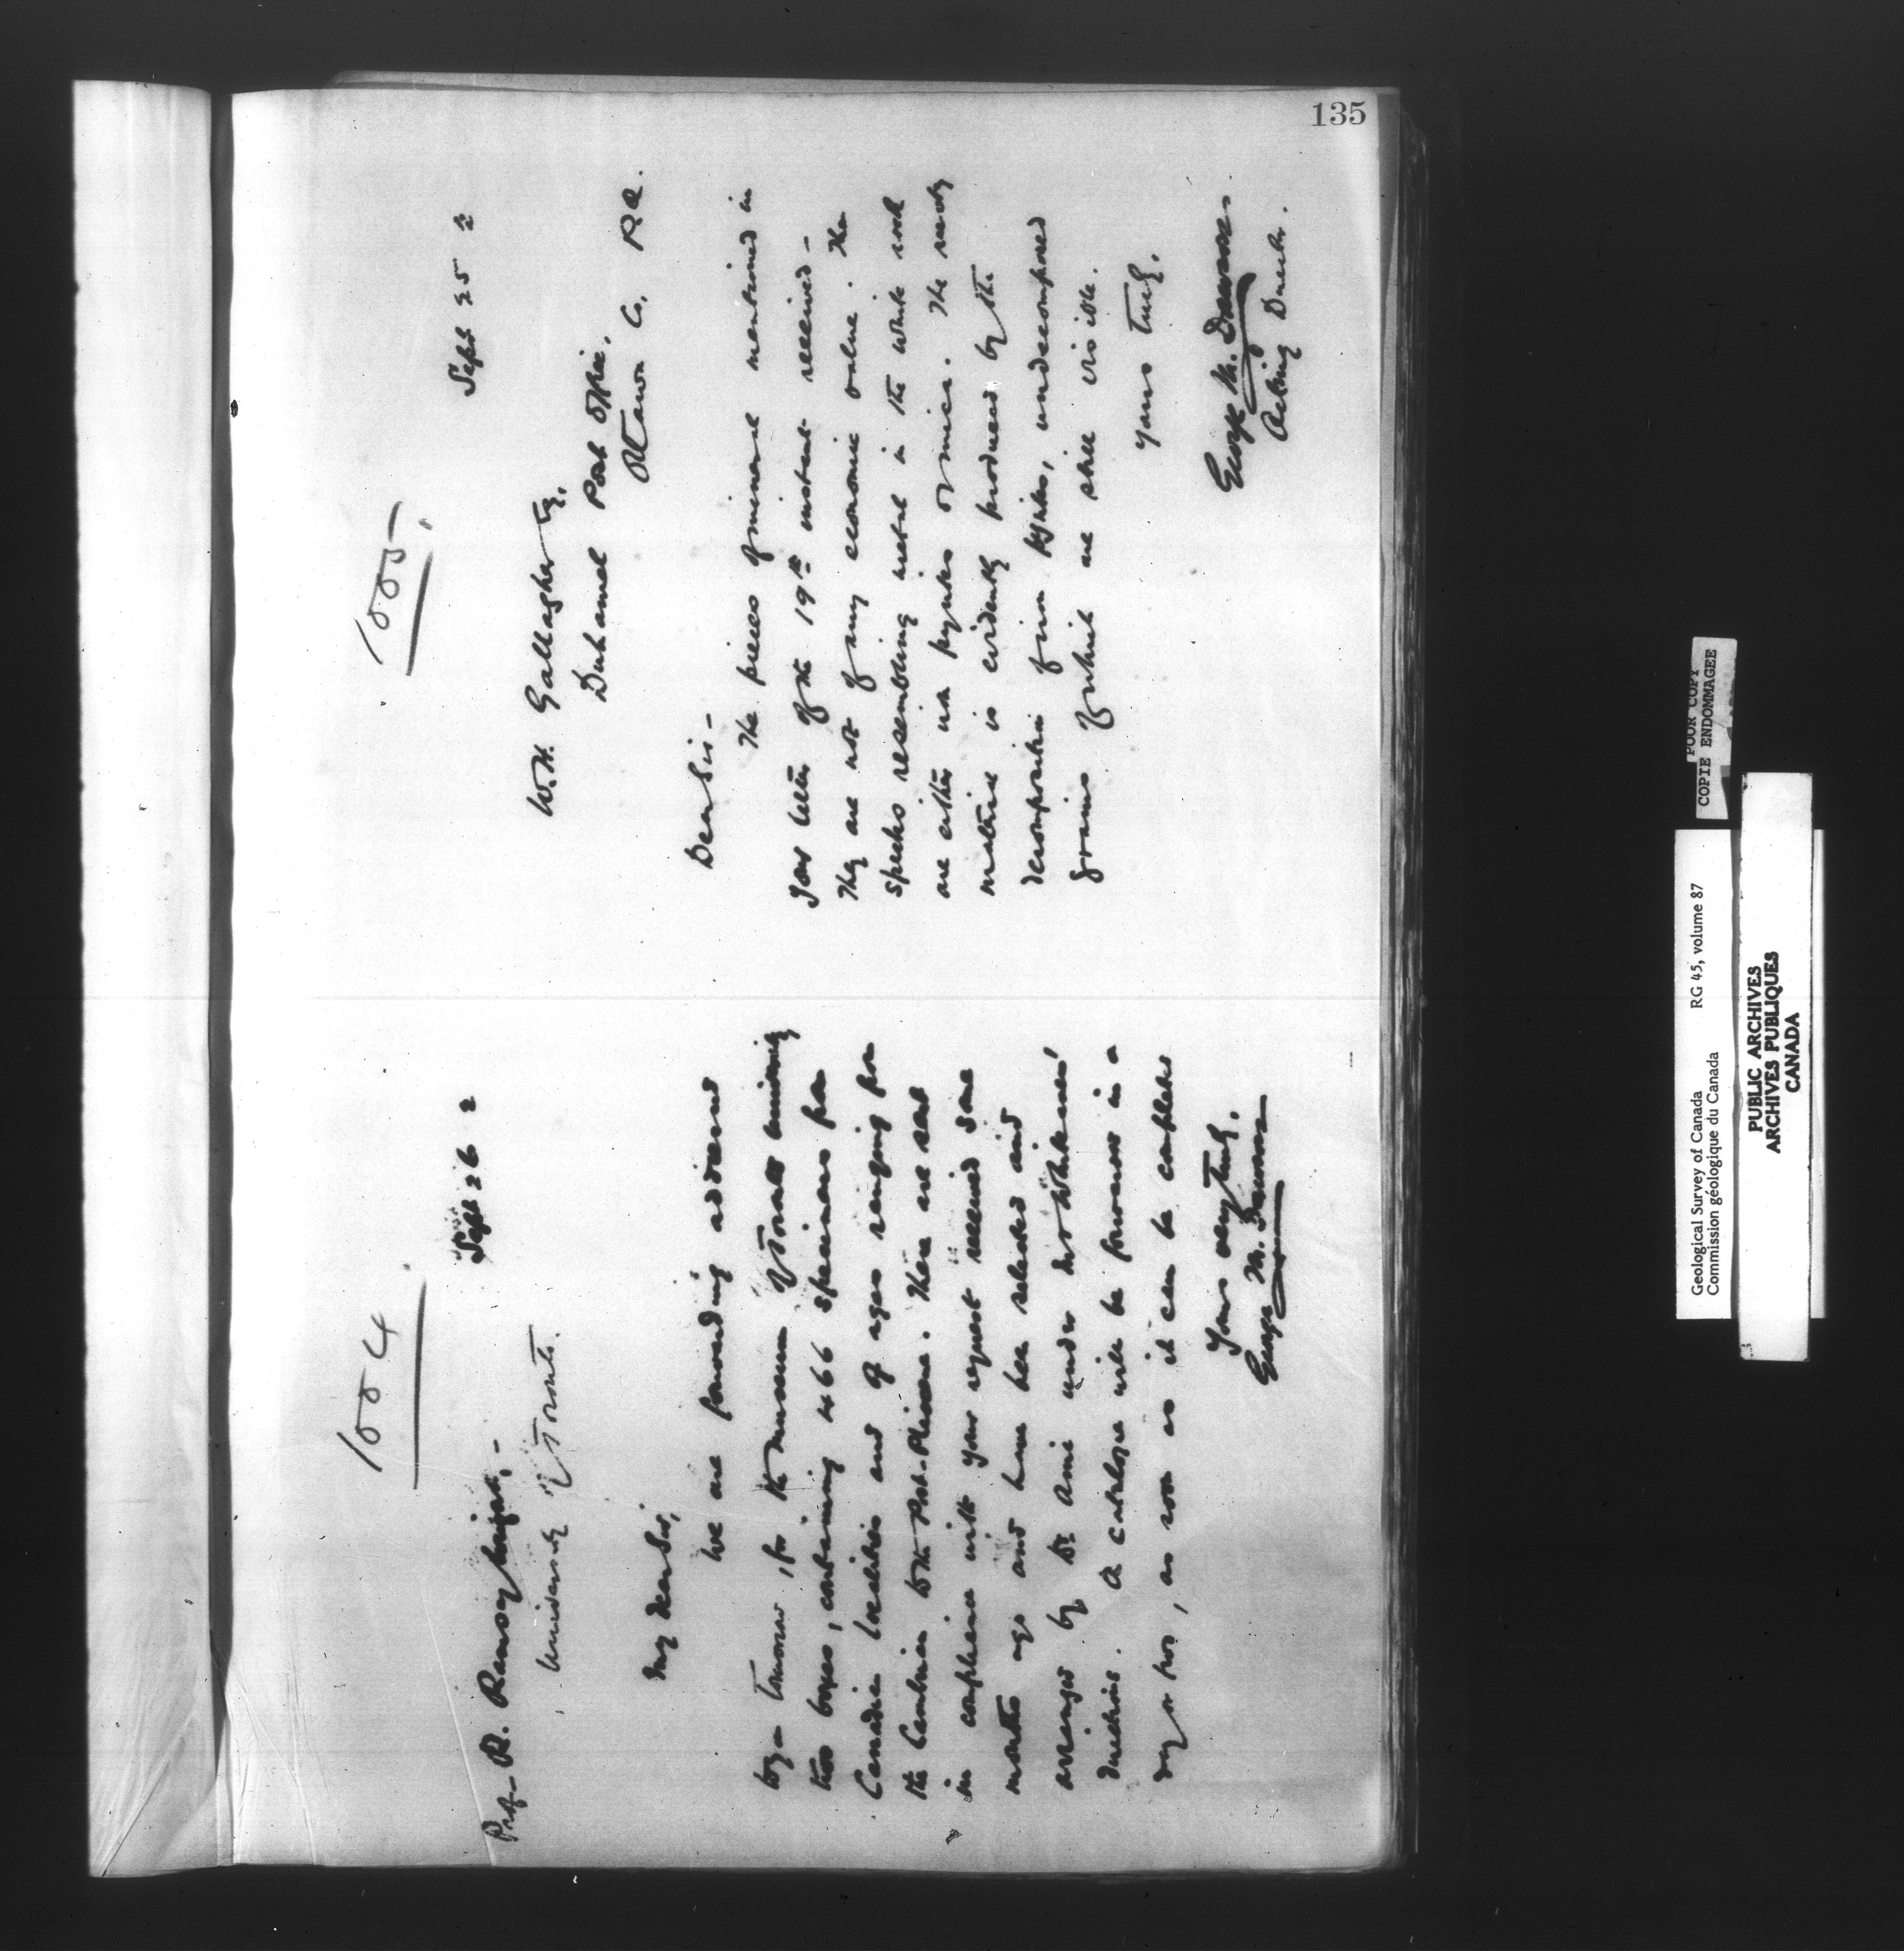 135
1004
Sept 26 2
Prof. R. Ramsay Wright,-
University of Toronto.
My dear Sir,
We are forwarding addressed
to you tomorrow, for the museum of Toronto University
two boxes, containing 466 specimens from
Canadian localities and of ages ranging from
the Cambrian to the Post-Pliocene. These are sent
in compliance with your request received some
months ago and have been selected and
arranged by Dr. Ami under Mr Whiteaves'
directions. A catalogue will be forwarded in a
day or two, as soon as it can be completed
Yours very truly,
George M. Dawson
1005.
Sept 25 2
W.H. Gallagher Esq.
Duhamel Post Office,
Ottawa Co, P.Q.
Dear Sir-
The pieces of mineral mentioned in
your letter of the 19th instant received-
They are not of any economic value. The
specks resembling metal in the white rock
are either iron pyrites or mica. The rusty
material is evidently produced by the
decomposition of iron pyrites, undecomposed
grains of which are still visible.
Yours truly.
George M. Dawson.
Acting Director.
POOR COPY
COPIE ENDOMMAGEE
Geological Survey of Canada RG 45, volume 87
Commission géologique du Canada
PUBLIC ARCHIVES
ARCHIVES PUBLIQUES
CANADA